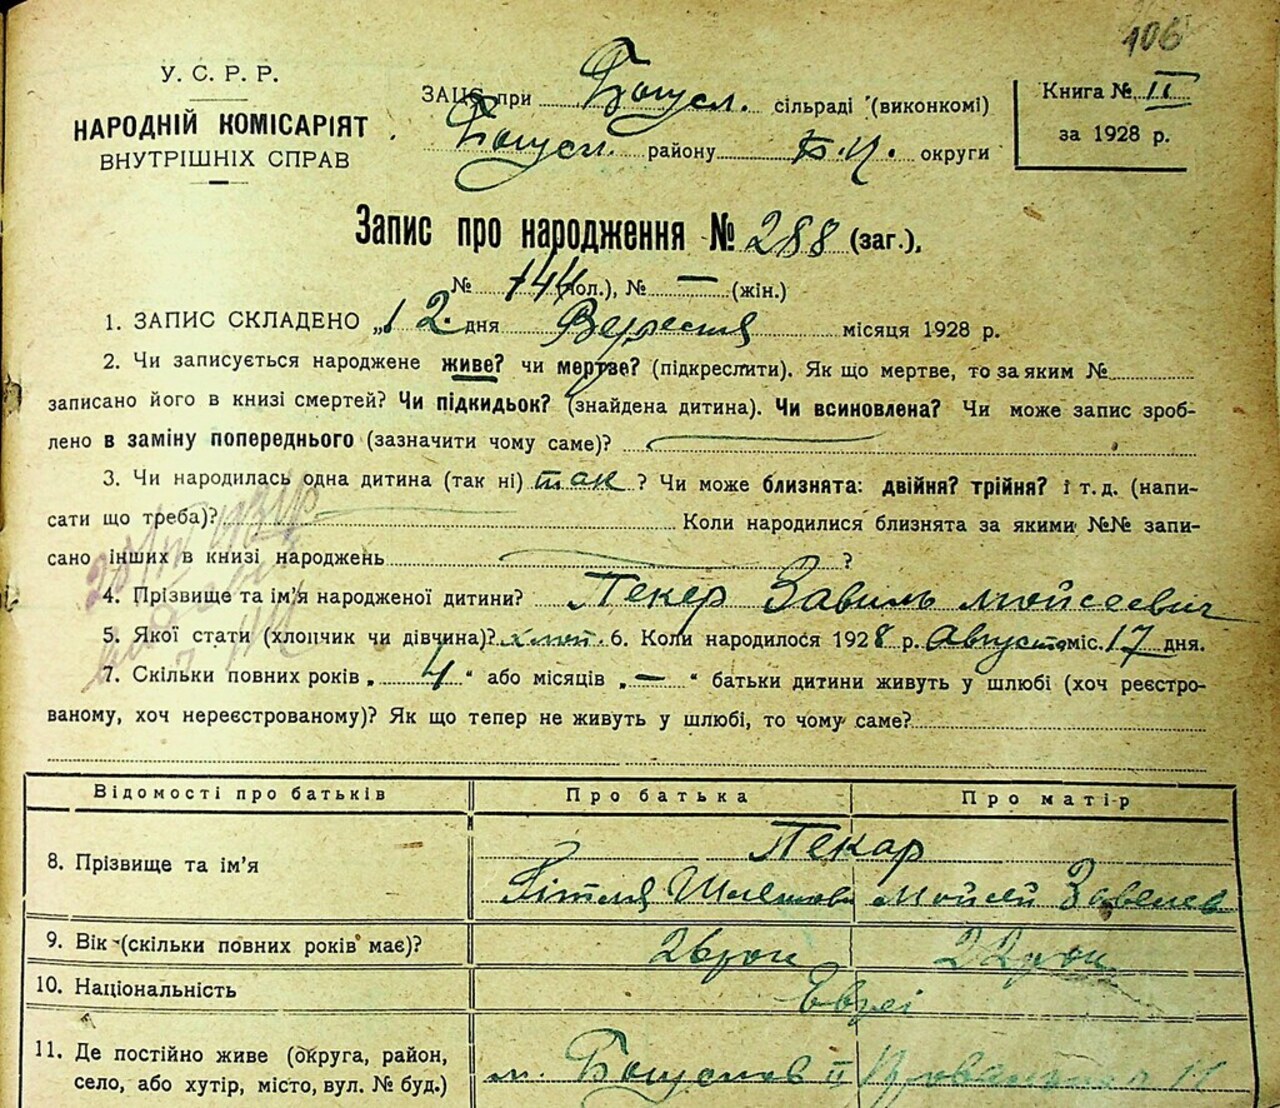 106
У. С. Р. Р.
НАРОДНІЙ КОМІСАРІЯТ
ВНУТРІШНІХ СПРАВ
ЗАЦС при Богусл. сільраді (виконкомі)
Богусл. району Б.Ц. округи
Книга № II
за 1928 р.
Запис про народження № 288 (заг.),
№ 144 (чол.), № — (жін.)
1. ЗАПИС СКЛАДЕНО „12 дня Вересня місяця 1928 р.
2. Чи записується народжене живе? чи мертве? (підкреслити). Як що мертве, то за яким №
записано його в книзі смертей? Чи підкидьок? (знайдена дитина). Чи всиновлена? Чи може запис зроб-
лено в заміну попереднього (зазначити чому саме)?
3. Чи народилась одна дитина (так ні) так ? Чи може близнята: двійня? трійня? і т. д. (напи-
сати що треба)? Коли народилися близнята за якими №№ запи-
сано інших в книзі народжень ?
4. Прізвище та ім'я народженої дитини? Пекер Завиль Мойсеевич
5. Якої стати (хлопчик чи дівчина)? хлоп. 6. Коли народилося 1928 р. Августа міс. 17 дня.
7. Скільки повних років „ 4 " або місяців „ — " батьки дитини живуть у шлюбі (хоч реєстро-
ваному, хоч нереєстрованому)? Як що тепер не живуть у шлюбі, то чому саме?
Відомості про батьків Про батька Про матір
Пекар
8. Прізвище та ім'я
Мойсей Завелев
9. Вік (скільки повних років має)? 26 рок 22 рок
10. Національність Евреі
11. Де постійно живе (округа, район,
село, або хутір, місто, вул. № буд.) м. Богуслав II